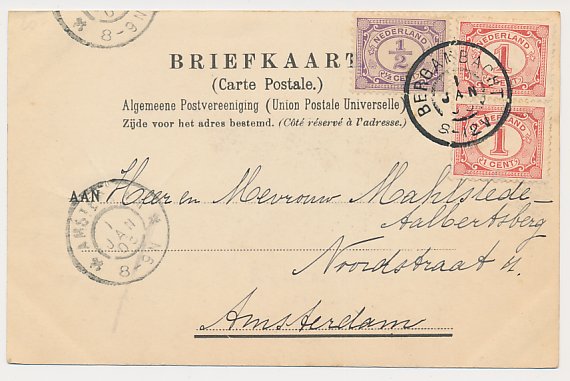 8-9N
BRIEFKAART
(Carte Postale.)
Algemeene Postvereeniging (Union Postale Universelle)
Zijde voor het adres bestemd. (Côté réservé à l'adresse.)
NEDERLAND
1/2
½ CENT
NEDERLAND
1
NEDERLAND
1
1 CENT
BERGAMBACHT
1
JAN
8-12V
AAN Heer en Mevrouw Mahlstede-
Aalbertsberg
Noordstraat 11.
Amsterdam
AMST
1
JAN
03
8-9N